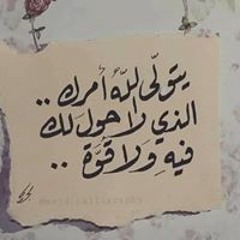 يتولّى اللهُ أمرك ..
الذي لا حول لك
فيهِ ولا قوّة ..